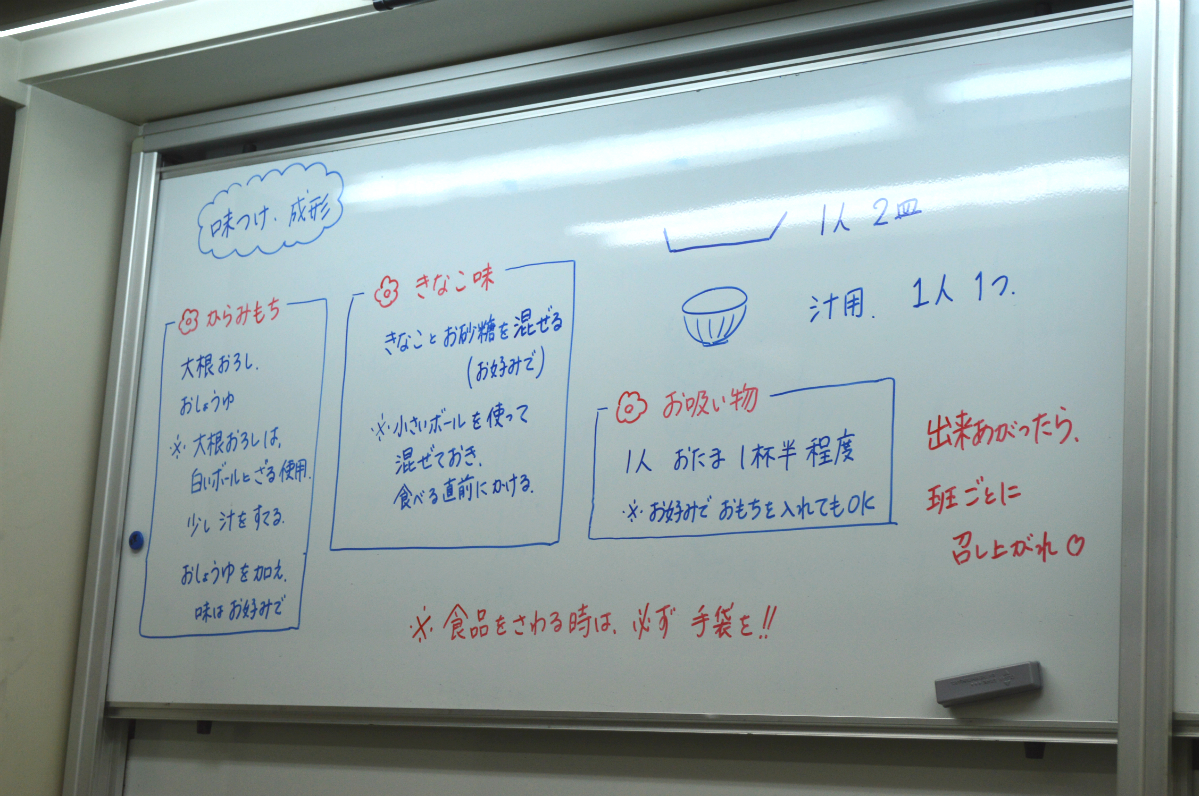 味つけ・成形
からみもち
大根おろし.
おしょうゆ
※ 大根おろしは、
白いボールとざる使用.
少し汁をすてる.
おしょうゆを加え.
味はお好みで
きなこ味
きなことお砂糖を混ぜる
(お好みで)
※ 小さいボールを使って
混ぜておき、
食べる直前にかける.
1人 2皿
汁用. 1人 1つ.
お吸い物
1人 おたま 1杯半 程度
※ お好みで おもちを入れてもOK
出来あがったら、
班ごとに
召し上がれ♡
※ 食品をさわる時は、必ず 手袋を!!